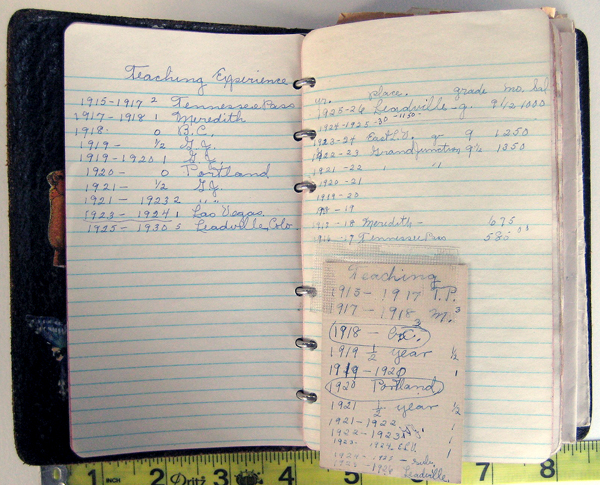 Teaching Experience
1915-1917 2 Tennessee Pass
1917-1918 1 Meredith
1918- 0 B.C.
1919- 1/2 G.J.
1919-1920 1 G.J.
1920- 0 Portland
1921- 1/2 G.J.
1921-1923 2 " "
1923-1924 1 Las Vegas
1925-1930 5 Leadville, Colo.
yr. place. grade mo. Sal.
1925-26 Leadville - g. 9 1/2 1000
1924-1925-30 -1150-
1923-24 East L.V. g- 9 1250
1922-23 Grand Junction 9 1/2 1350
1921-22 " "
1920-21
1919-20
1918-19
1917-18 Meredith - 675
1916-17 Tennessee Pass
Teaching
1915-1917 T.P.
1917-1918 M. 3
1918 - C. 3
1919 1/2 year 1/2
1919-1920 1
1920 Portland
1921 1/2 year 1/2
1921-1922 1
1922-1923 1
1923- 1924 1
1928 Leadville.
1 INCH 2 3 4 5 7 8